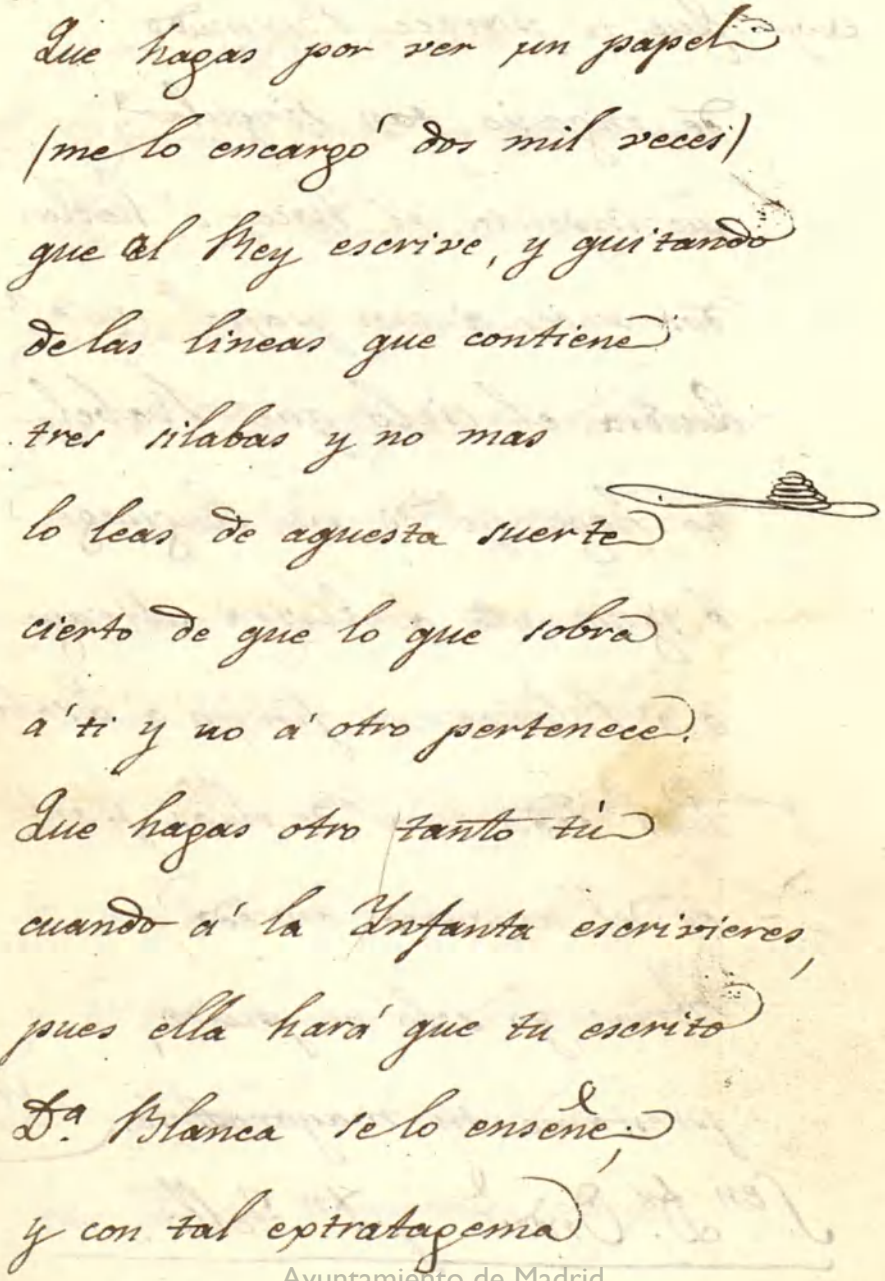 Que hagas por ver un papel
(me lo encargó dos mil veces)
que al Rey escrive, y quitando
de las lineas que contiene
tres silabas y no mas
lo leas de aquesta suerte
cierto de que lo que sobra
á ti y no á otro pertenece.
Que hagas otro tanto tú
cuando á la Infanta escrivieres,
pues ella hará que tu escrito
Dª. Blanca se lo enseñe;
y con tal extratagema
Ayuntamiento de Madrid